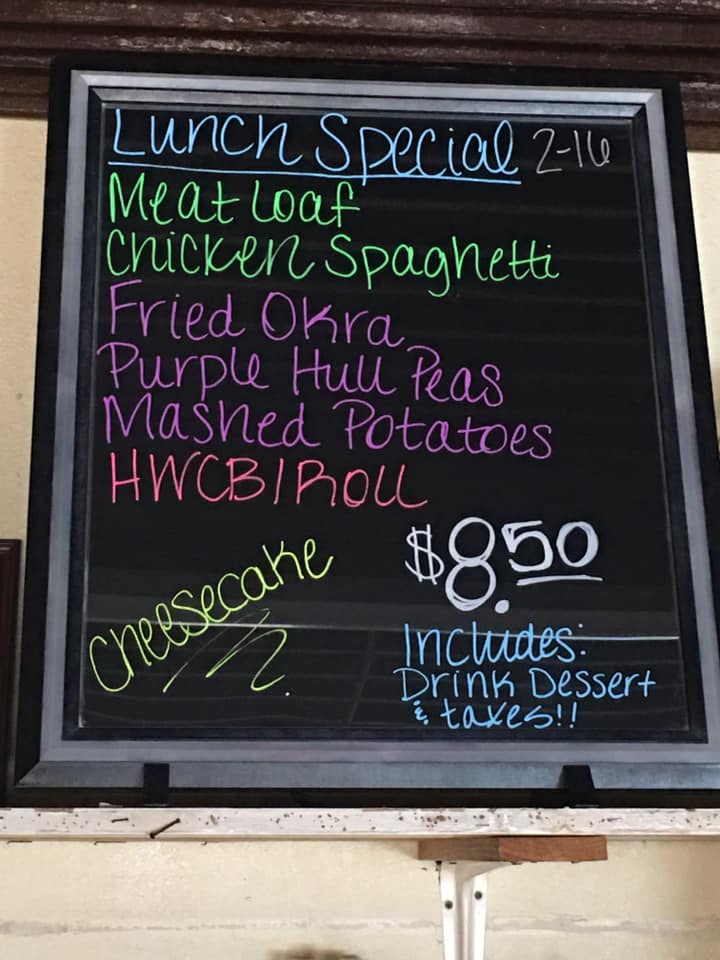 Lunch Special 2-16
Meat Loaf
Chicken Spaghetti
Fried Okra
Purple Hull Peas
Mashed Potatoes
HWCB/Roll
Cheesecake
$8.50
Includes:
Drink Dessert
& taxes!!